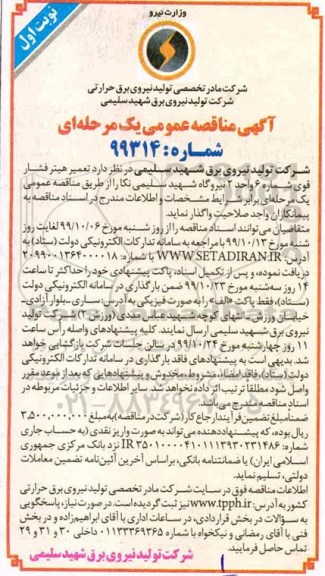 نوبت اول
وزارت نیرو
شرکت مادر تخصصی تولید نیروی برق حرارتی
شرکت تولید نیروی برق شهید سلیمی
آگهی مناقصه عمومی یک مرحله‌ای
شماره: ۹۹۳۱۴
شرکت تولید نیروی برق شهید سلیمی در نظر دارد تعمیر هیتر فشار
قوی شماره ۶ واحد ۱ نیروگاه شهید سلیمی نکا را از طریق مناقصه عمومی
یک مرحله‌ای برابر شرایط مشخصات و اطلاعات مندرج در اسناد مناقصه به
پیمانکاران واجد صلاحیت واگذار نماید.
متقاضیان می‌توانند اسناد مناقصه را از روز شنبه مورخ ۹۹/۱۰/۰۶ لغایت روز
شنبه مورخ ۹۹/۱۰/۱۳ با مراجعه به سامانه تدارکات الکترونیکی دولت (ستاد) به
آدرس WWW.SETADIRAN.IR با شماره: ۲۰۹۹۰۰۱۳۶۴۰۰۰۰۱۸
دریافت نموده، و پس از تکمیل اسناد، پاکت پیشنهادی خود را حداکثر تا ساعت
۱۴ روز سه‌شنبه مورخ ۹۹/۱۰/۲۳ ضمن بارگذاری در سامانه الکترونیکی دولت
(ستاد)، فقط پاکت «الف» را به صورت فیزیکی به آدرس: ساری-بلوار آزادی-
خیابان ورزش- انتهای کوچه شهید عباسعلی مددی (ورزش ۲) شرکت تولید
نیروی برق شهید سلیمی ارسال نمایند. کلیه پیشنهادهای واصله رأس ساعت
۱۱ روز چهارشنبه مورخ ۹۹/۱۰/۲۴ در سالن جلسات شرکت بازگشایی خواهد
شد. بدیهی است به پیشنهادهای فاقد بارگذاری در سامانه تدارکات الکترونیکی
دولت (ستاد)، فاقد امضاء، مشروط، مخدوش و پیشنهادهایی که بعد از موعد مقرر
واصل شود مطلقا ترتیب اثر داده نخواهد شد. سایر اطلاعات و جزئیات مربوطه در
اسناد مناقصه مندرج می‌باشد.
ضمنا مبلغ تضمین فرآیند ارجاع کار (شرکت در مناقصه) به مبلغ ۳,۵۰۰,۰۰۰,۰۰۰
ریال بوده، که پیشنهاددهنده می‌تواند به صورت واریز نقدی (به حساب جاری
شماره IR ۳۵۰۱۰۰۰۰۴۰۱۰۱۱۱۳۹۳۰۲۳۱۴۸۶ نزد بانک مرکزی جمهوری
اسلامی ایران) یا ضمانتنامه بانکی، براساس آخرین آئین‌نامه تضمین معاملات
دولتی، تسلیم نماید.
اطلاعات مناقصه فوق در سایت شرکت مادر تخصصی تولید نیروی برق حرارتی
کشور به آدرس: www.tpph.ir نیز ثبت گردیده است. در صورت نیاز، پاسخگویی
به سؤالات در بخش قراردادی، در ساعات اداری با آقای ابراهیم‌زاده و در بخش
فنی با آقای رمضانی و نیکخواه با شماره ۰۱۱۳۳۳۶۹۳۶۵ داخلی ۳۰ و ۳۱ و ۲۹
تماس حاصل فرمایید.
شرکت تولید نیروی برق شهید سلیمی